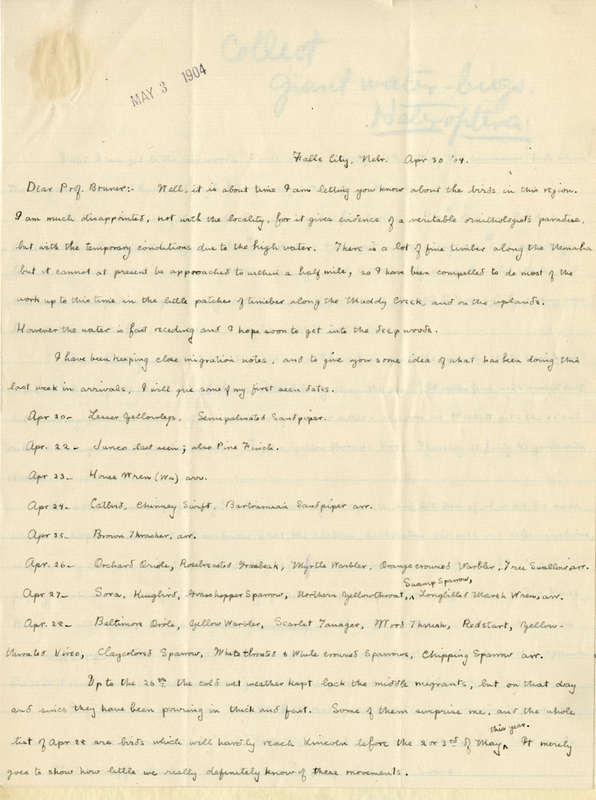 Collect
Giant water-bugs
Heteroptera
MAY 3 1904
Falls City, Nebr. Apr 30 '04.
Dear Prof. Bruner:- Well, it is about time I am letting you know about the birds in this region.
I am much disappointed, not with the locality, for it gives evidence of a veritable ornithologist's paradise,
but with the temporary conditions due to the high water. There is a lot of fine timber along the Nemaha
but it cannot at present be approached to within a half mile, so I have been compelled to do most of the
work up to this time in the little patches of timber along the Muddy Creek, and on the uplands.
However the water is fast receding and I hope soon to get into the deep woods.
I have been keeping close migration notes, and to give you some idea of what has been doing this
last week in arrivals, I will give some of my first seen dates.
Apr 20- Lesser Yellowlegs, Semipalmated Sandpiper.
Apr. 22- Junco last seen; also Pine Finch.
Apr 23- House Wren (Wn) arr.
Apr 24- Catbird, Chimney Swift, Bartramian Sandpiper arr.
Apr 25- Brown Thrasher, arr.
Apr. 26- Orchard Oriole, Rosebreasted Grosbeak, Myrtle Warbler, Orangecrowned Warbler, Tree Swallow arr.
Apr 27- Sora, Kingbird, Grasshopper Sparrow, Northern Yellowthroat, ^ Swamp Sparrow, Longbilled Marsh Wren, arr.
Apr. 28- Baltimore Oriole, Yellow Warbler, Scarlet Tanager, Wood Thrush, Redstart, Yellow-
throated Vireo, Claycolored Sparrow, Whitethroated & White crowned Sparrows, Chipping Sparrow arr.
Up to the 26th the cold wet weather kept back the middle migrants, but on that day
and since they have been pouring in thick and fast. Some of them surprise me, and the whole
list of Apr 28 are birds which will hardly reach Lincoln before the 2 or 3rd of May ^ this year. It merely
goes to show how little we really definitely know of these movements.